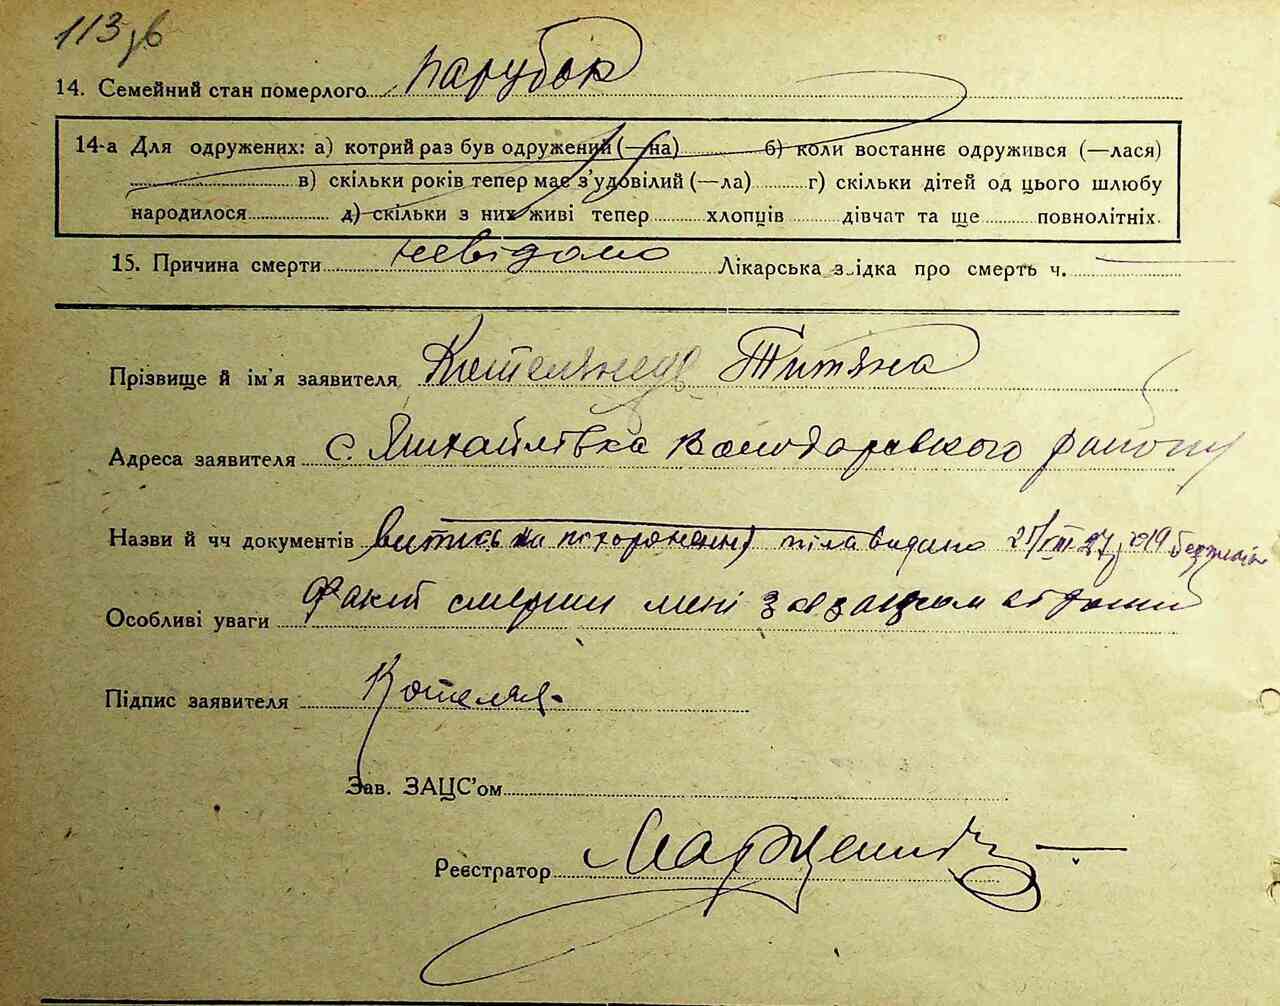 113 зв
14. Семейний стан померлого парубок
14-а Для одружених: а) котрий раз був одружений (—на) б) коли востаннє одружився (—лася)
в) скільки років тепер має з’удовілий (—ла) г) скільки дітей од цього шлюбу
народилося д) скільки з них живі тепер хлопців дівчат та ще повнолітніх.
15. Причина смерти невідомо Лікарська з ідка про смерть ч.
Прізвище й ім’я заявителя Титяна
Адреса заявителя с. Михайлівка Володарського району
Назви й чч документів витись на похоронення тіла видано 27
Особливі уваги Факт смерти мені
Підпис заявителя
Зав. ЗАЦС’ом
Реєстратор